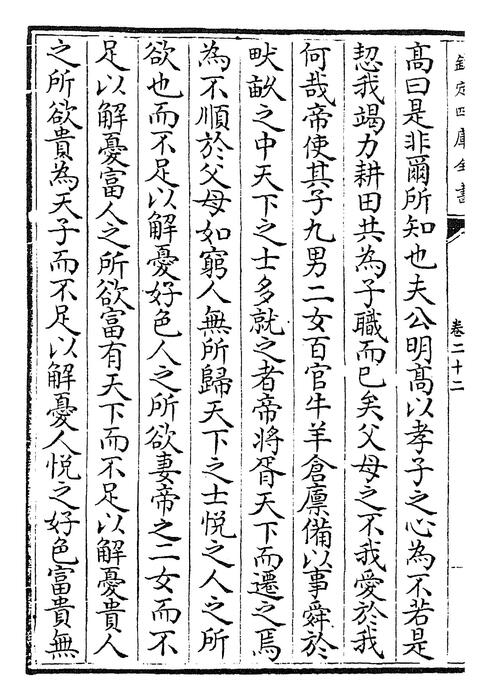 欽定四庫全書
卷二十二
高曰是非爾所知也夫公明髙以孝子之心為不若是
恝我竭力耕田共為子職而已矣父母之不我愛於我
何哉帝使其子九男二女百官牛羊倉廩備以事舜於
畎畝之中天下之士多就之者帝將胥天下而遷之焉
為不順於父母如窮人無所歸天下之士悦之人之所
欲也而不足以解憂好色人之所欲妻帝之二女而不
足以解憂富人之所欲富有天下而不足以解憂貴人
之所欲貴為天子而不足以解憂人悦之好色富貴無